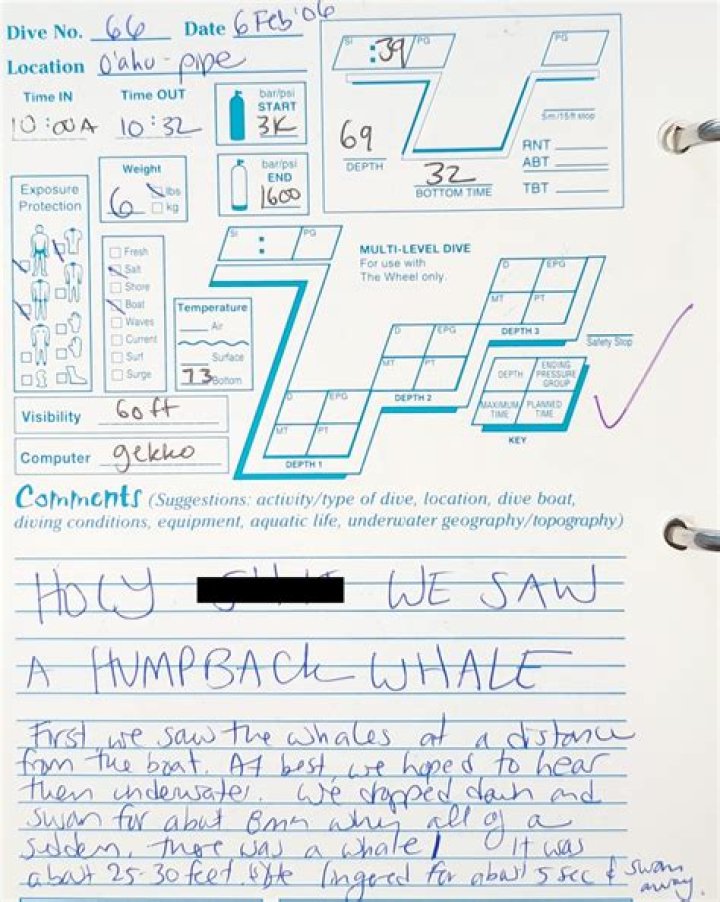 Dive No. 66 Date 6 Feb '06
Location O'ahu - pipe
Time IN Time OUT
10:00A 10:32
bar/psi
START
3K
bar/psi
END
1600
Weight
6 lbs
kg
Exposure
Protection
Fresh
Salt
Shore
Boat
Waves
Current
Surf
Surge
Temperature
Air
Surface
73 Bottom
Visibility 60 ft
Computer gekko
SI :39 PG
PG
69
DEPTH
32
BOTTOM TIME
5m/15ft stop
RNT
ABT
TBT
SI : PG
MULTI-LEVEL DIVE
For use with
The Wheel only.
D EPG
MT PT
DEPTH 3
D EPG
MT PT
DEPTH 2
D EPG
MT PT
DEPTH 1
Safety Stop
DEPTH ENDING PRESSURE GROUP
MAXIMUM TIME PLANNED TIME
KEY
Comments (Suggestions: activity/type of dive, location, dive boat,
diving conditions, equipment, aquatic life, underwater geography/topography)
HOLY WE SAW
A HUMPBACK WHALE
First we saw the whales at a distance
from the boat. At best, we hoped to hear
them underwater. We dropped down and
swam for about 8mn when all of a
sudden, there was a whale! It was
about 25-30 feet. lingered for about 5 sec & swam
away.